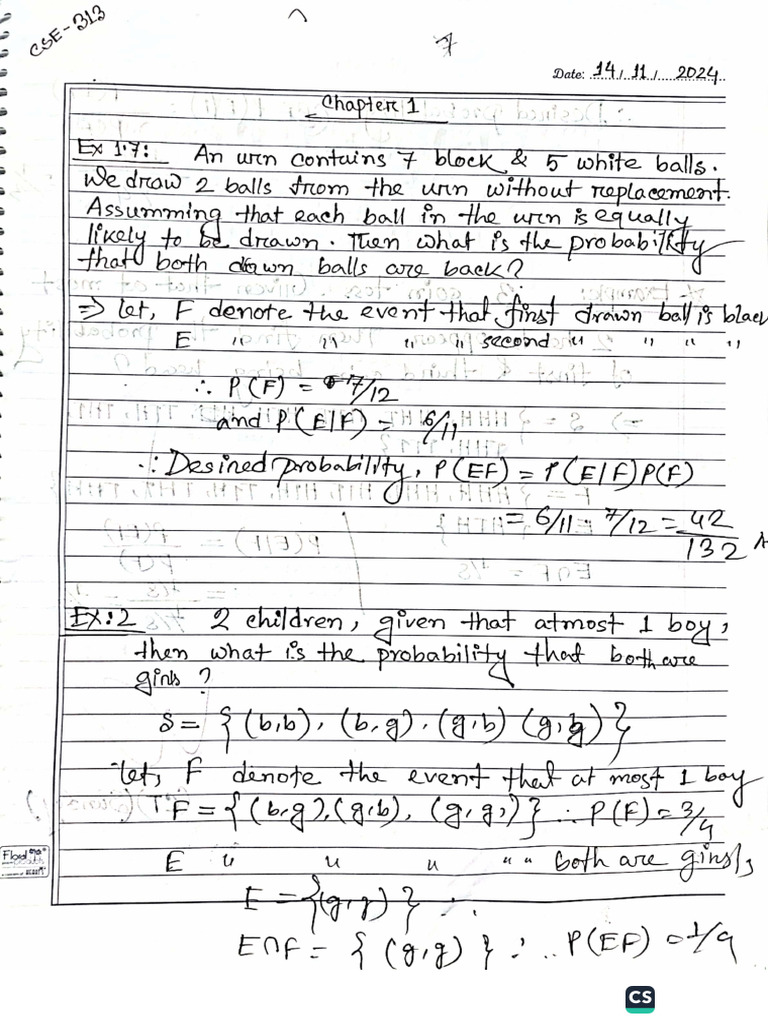 CSE-313
7
Date: 14/11/2024
Chapter 1
Ex 1.7: An urn contains 7 block & 5 white balls.
We draw 2 balls from the urn without replacement.
Assumming that each ball in the urn is equally
likely to be drawn. Then what is the probability
that both drawn balls are back?
⇒ let, F denote the event that first drawn ball is black
E " " " " second " " " "
∴ P(F) = 7/12
and P(E|F) = 6/11
∴ Desired probability, P(EF) = P(E|F)P(F)
= 6/11 · 7/12 = 42/132
Ex:2 2 children, given that atmost 1 boy,
then what is the probability that both are
girls?
S = {(b,b), (b,g), (g,b) (g,g)}
let, F denote the event that at most 1 boy
F = {(b,g), (g,b), (g,g)} ∴ P(F) = 3/4
E " " " " " both are girls,
E = {(g,g)}
E∩F = {(g,g)} ∴ P(EF) = 1/4
CS